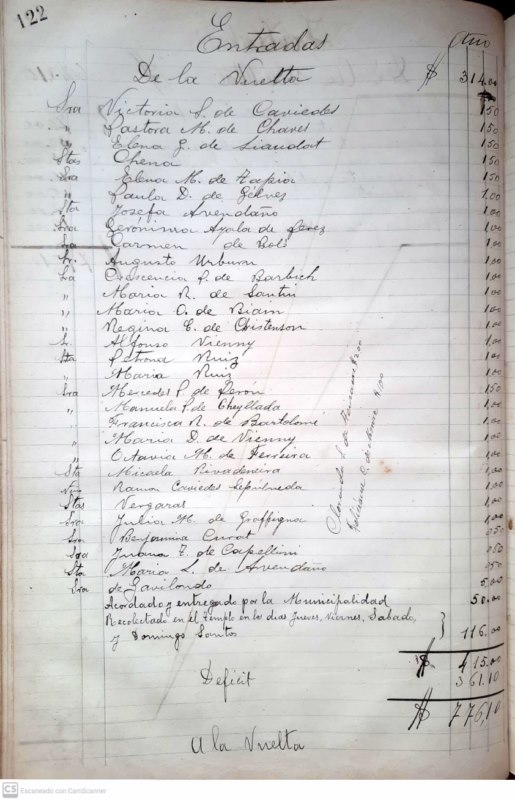 122
Entradas
Año
De la Vuelta $ 314.00
Sra Victoria S. de Caviedes 1.50
" Pastora M. de Chaves 1.50
" Elena G. de Liaudat 1.50
Stas Ohena 1.50
Sra Elena M. de Tapia 1.50
" Paula D. de Gelvez 1.00
Sta Josefa Avendaño 1.00
Sra Geronima Ayala de Perez 1.00
Sra Carmen de Bois 1.00
Sr. Augusto Urburu 1.00
Sra Crescencia P. de Barbich 1.00
" Maria R. de Santin 1.00
" Maria O. de Biam 1.00
" Regina E. de Christenson 1.00
Sr. Alfonso Vienny 1.00
Sta Petrona Ruiz 1.00
" Maria Ruiz 1.00
Sra Mercedes P. de Perón 1.50
" Manuela P. de Cheyllada 1.00
" Francisca R. de Bartolomé 1.00
" Maria D. de Vienny 1.00
" Octavia M. de Ferreira 1.00
Sta Micaela Rivadeneira 1.00
Niño Ramon Caviedes Sepúlveda 1.00
Stas Vergaras 1.00
Sra Julia M. de Graffigna 1.00
Sra Benjamina Curat 0.50
Sra Juana Z. de Capellini 0.50
Sta Maria L. de Avendaño 0.50
Sra de Gavilondo 5.00
Acordado y entregado por la Municipalidad 50.00
Recolectado en el Templo en los dias Jueves, Viernes, Sabado,
y Domingo Santos } 116.00
$ 415.00
Deficit 361.10
$ 776,10
A la Vuelta
CS Escaneado con CamScanner